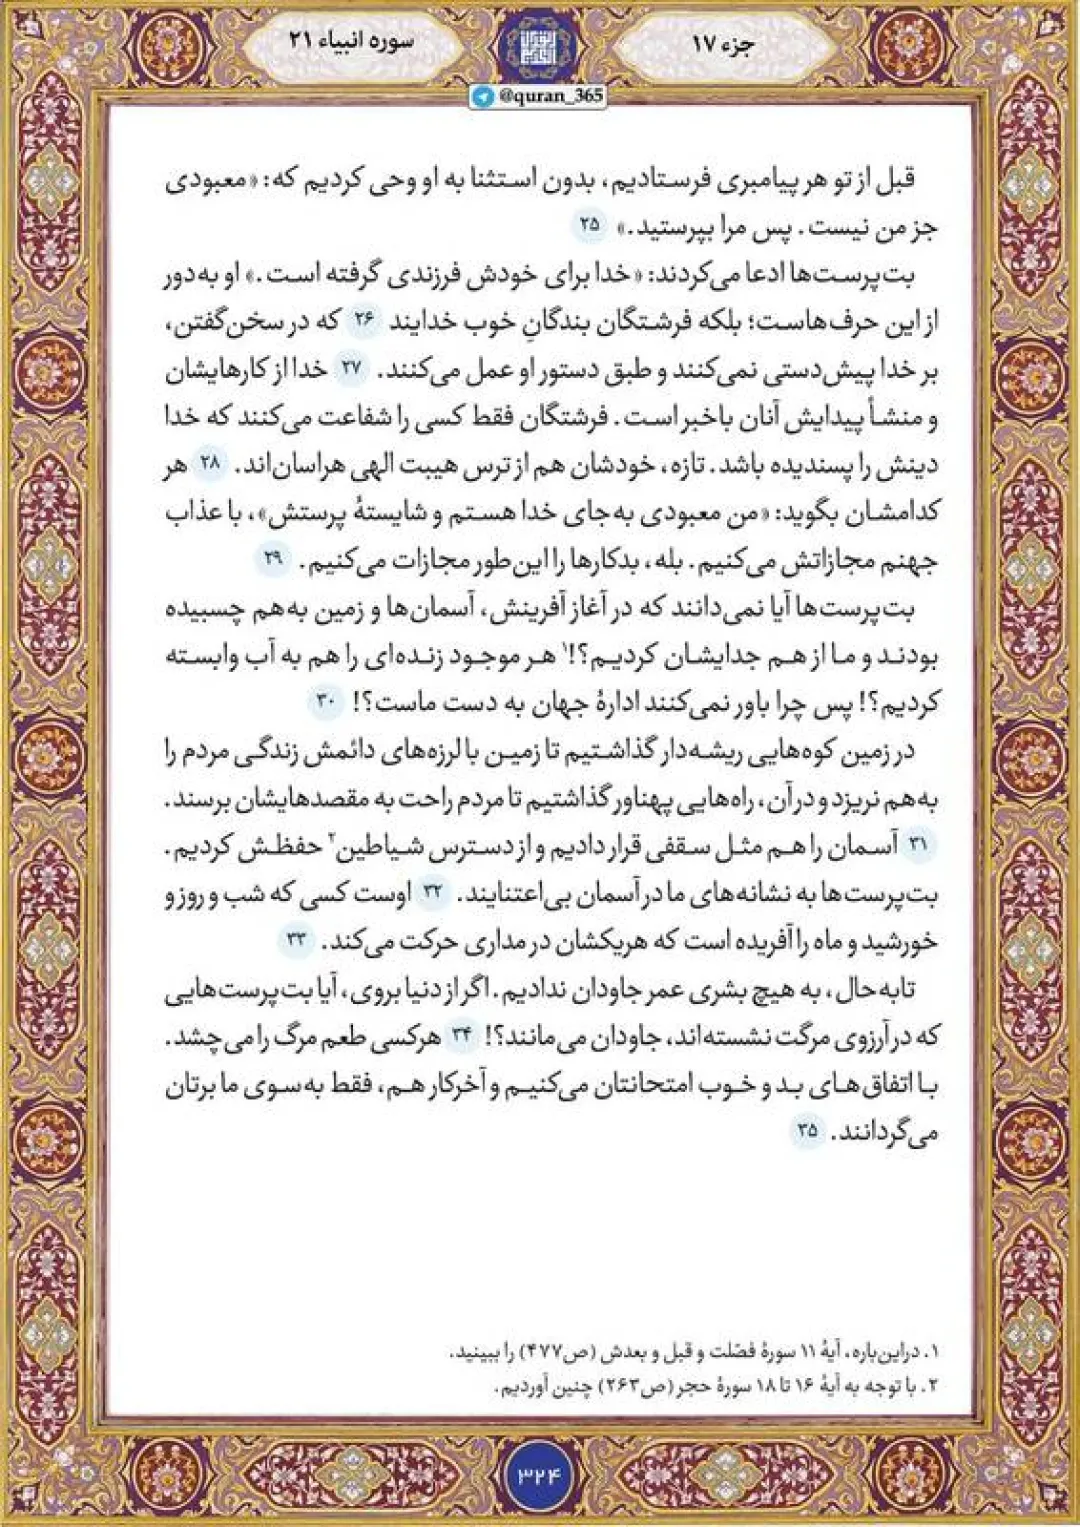 جزء ۱۷
سوره انبیاء ۲۱
@quran_365
قبل از تو هر پیامبری فرستادیم، بدون استثنا به او وحی کردیم که: «معبودی
جز من نیست. پس مرا بپرستید.» ۲۵
بت‌پرست‌ها ادعا می‌کردند: «خدا برای خودش فرزندی گرفته است.» او به‌دور
از این حرف‌هاست؛ بلکه فرشتگان بندگانِ خوب خدایند ۲۶ که در سخن‌گفتن،
بر خدا پیش‌دستی نمی‌کنند و طبق دستور او عمل می‌کنند. ۲۷ خدا از کارهایشان
و منشأ پیدایش آنان باخبر است. فرشتگان فقط کسی را شفاعت می‌کنند که خدا
دینش را پسندیده باشد. تازه، خودشان هم از ترس هیبت الهی هراسان‌اند. ۲۸ هر
کدامشان بگوید: «من معبودی به‌جای خدا هستم و شایستهٔ پرستش»، با عذاب
جهنم مجازاتش می‌کنیم. بله، بدکارها را این‌طور مجازات می‌کنیم. ۲۹
بت‌پرست‌ها آیا نمی‌دانند که در آغاز آفرینش، آسمان‌ها و زمین به‌هم چسبیده
بودند و ما از هم جدایشان کردیم؟!۱ هر موجود زنده‌ای را هم به آب وابسته
کردیم؟! پس چرا باور نمی‌کنند ادارهٔ جهان به دست ماست؟! ۳۰
در زمین کوه‌هایی ریشه‌دار گذاشتیم تا زمین با لرزه‌های دائمش زندگی مردم را
به‌هم نریزد و در آن، راه‌هایی پهناور گذاشتیم تا مردم راحت به مقصدهایشان برسند.
۳۱ آسمان را هم مثل سقفی قرار دادیم و از دسترس شیاطین۲ حفظش کردیم.
بت‌پرست‌ها به نشانه‌های ما در آسمان بی‌اعتنایند. ۳۲ اوست کسی که شب و روز و
خورشید و ماه را آفریده است که هریکشان در مداری حرکت می‌کند. ۳۳
تابه‌حال، به هیچ بشری عمر جاودان ندادیم. اگر از دنیا بروی، آیا بت‌پرست‌هایی
که در آرزوی مرگت نشسته‌اند، جاودان می‌مانند؟! ۳۴ هرکسی طعم مرگ را می‌چشد.
با اتفاق‌های بد و خوب امتحانتان می‌کنیم و آخرکار هم، فقط به‌سوی ما برتان
می‌گردانند. ۳۵
۱. دراین‌باره، آیهٔ ۱۱ سورهٔ فصّلت و قبل و بعدش (ص۴۷۷) را ببینید.
۲. با توجه به آیهٔ ۱۶ تا ۱۸ سورهٔ حجر (ص۲۶۳) چنین آوردیم.
۳۲۴